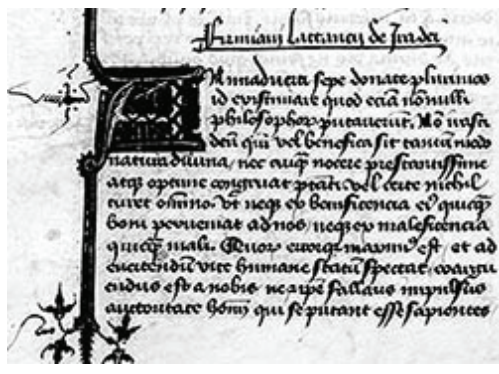 Firmiani lactancii de ira dei
Animaduerti sepe donate plurimos
id existimare quod eciam nonnulli
philosophorum putauerunt. Non irasci
deum qui vel benefica sit tantum modo
natura diuina, nec cuiquam nocere prestantissime
atque optime congruat potestati vel certe nichil
curet omnino. vt neque ex beneficencia eius quicquam
boni perueniat ad nos, neque ex maleficencia
quicquam mali. Quorum error quia maximus est et ad
euertendum vite humane statum spectat, coarguendus
est a nobis ne ipse fallaris impulsus
auctoritate hominum qui se putant esse sapientes